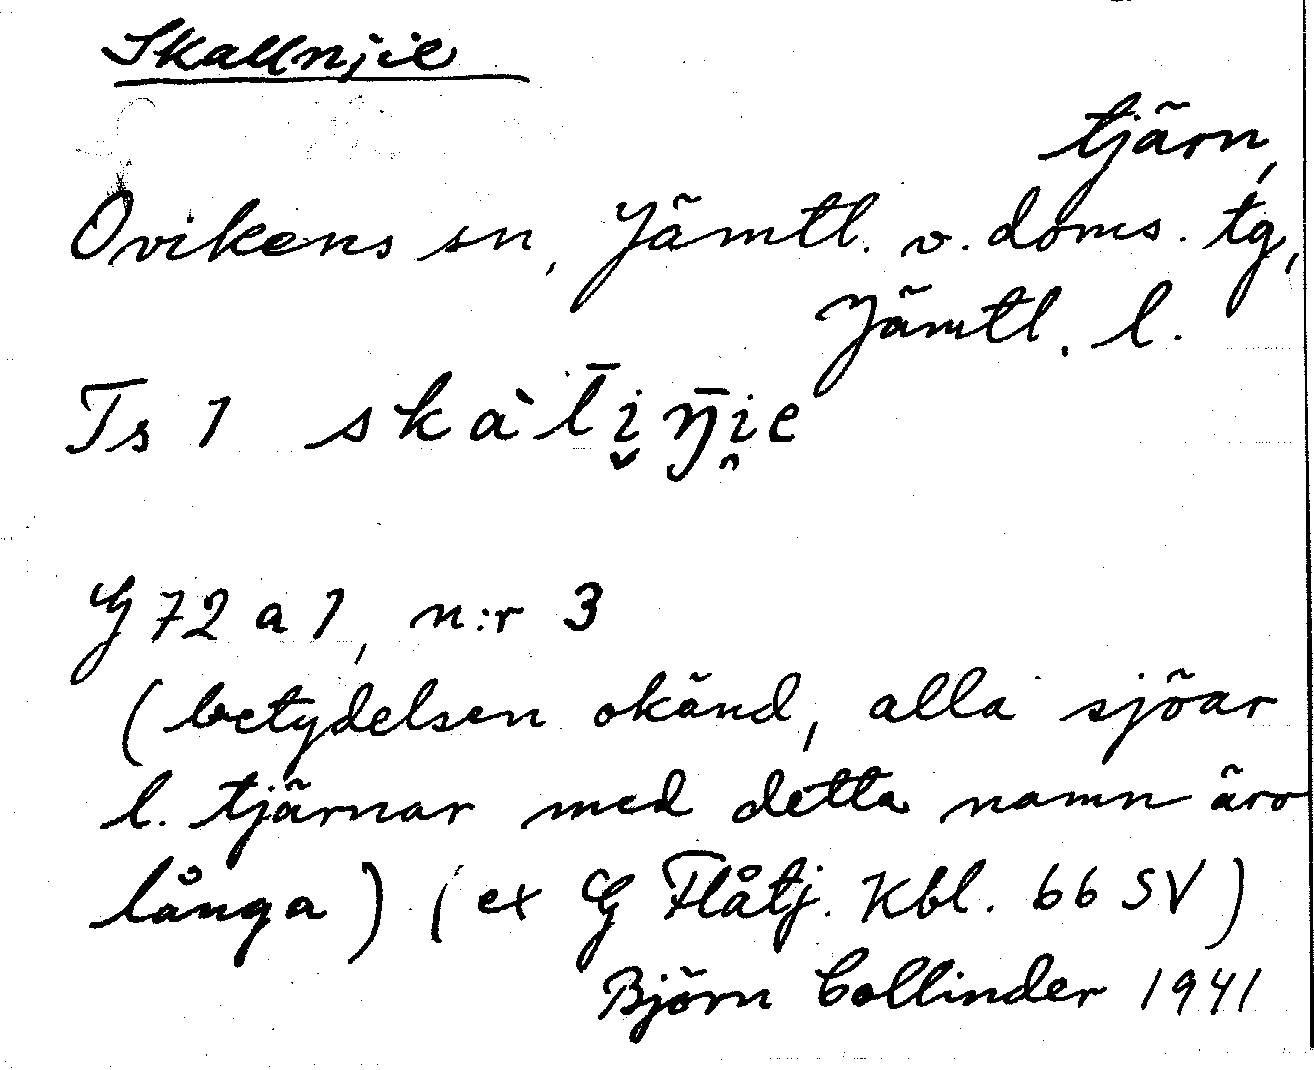 Skallnjie
tjärn,
Ovikens sn, Jämtl. v. doms. tg,
Jämtl. l.
Ts 1 skàl̄i̬ŋ̄i̯e
G 72 a 1, n:r 3
(betydelsen okänd, alla sjöar
l. tjärnar med detta namn äro
långa) (ex G Flåtj. Kbl. 66 SV)
Björn Collinder 1941